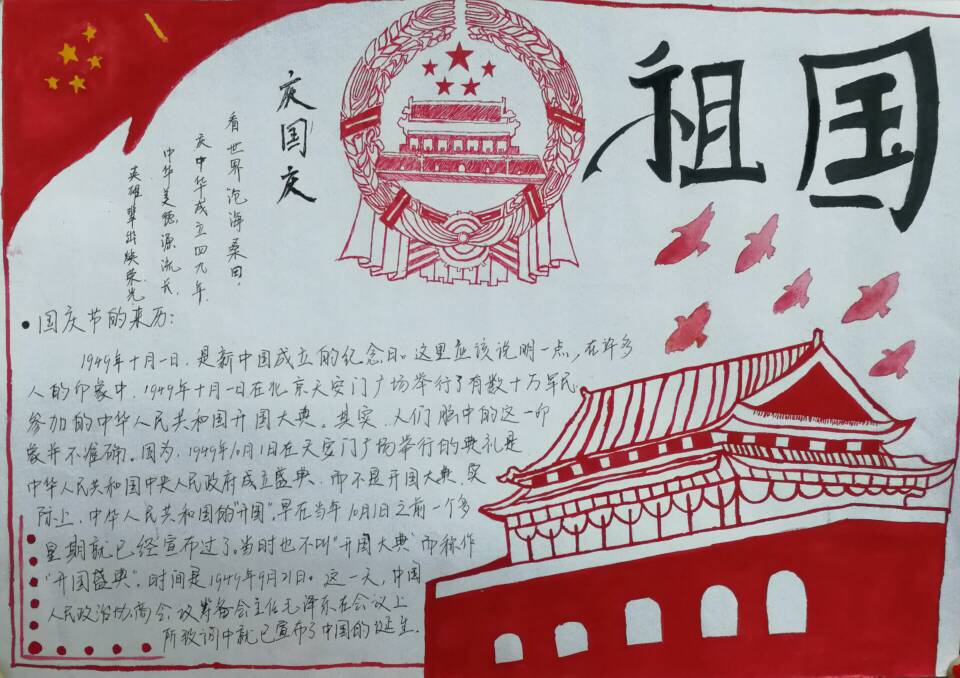 祖国
庆国庆
看世界沧海桑田，
庆中华成立四九年，
中华美德源流长，
英雄辈出映荣光
国庆节的来历：
1949年十月一日，是新中国成立的纪念日。这里应该说明一点，在许多
人的印象中，1949年十月一日在北京天安门广场举行了有数十万军民
参加的中华人民共和国开国大典。其实，人们脑中的这一印
象并不准确。因为，1949年10月1日在天安门广场举行的典礼是
中华人民共和国中央人民政府成立盛典，而不是开国大典，实
际上，中华人民共和国的"开国"，早在当年10月1日之前一个多
星期就已经宣布过了。当时也不叫"开国大典"而称作
"开国盛典"。时间是1949年9月21日。这一天，中国
人民政治协商会议筹备会主任毛泽东在会议上
所致词中就已宣布了中国的诞生。